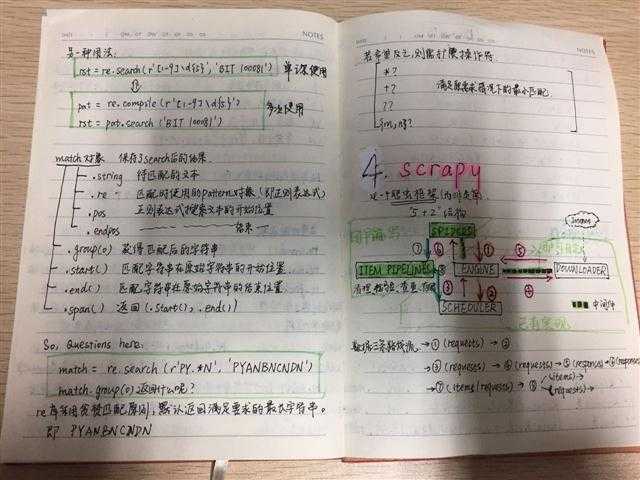 NOTES
另一种用法:
rst = re.search(r'[1-9]\d{5}', 'BIT 100081') 单次使用
pat = re.compile(r'[1-9]\d{5}')
rst = pat.search('BIT 100081') 多次使用
match对象 保存了search后的结果
.string 待匹配的文本
.re 匹配时使用的pattern对象(即正则表达式)
.pos 正则表达式搜索文本的开始位置
.endpos 结束
.group(0) 获得匹配后的字符串
.start() 匹配字符串在原始字符串的开始位置
.end() 匹配字符串在原始字符串的结束位置
.span() 返回(.start(), .end())
So, Questions here.
match = re.search(r'PY.*N', 'PYANBNCNDN')
match.group(0)返回什么呢?
re库采用贪婪匹配原则,默认返回满足要求的最大字符串。
即 PYANBNCNDN
NOTES
若希望反之,则需扩展操作符
*?
+? 满足要求情况下的最小匹配
??
{m,n}?
4. scrapy
是一个爬虫框架
"5+2"结构
Internet
SPIDERS
ITEM PIPELINES
ENGINE
DOWNLOADER
⑦ ⑥ ② ①
⑧ ⑤ ④
SCHEDULER
中间件
已有实现
数据三条路线流 →①(requests)→②
→③(requests)→④(requests)→⑤(response)→⑥
→⑦(items/requests)→⑧(items)
(requests)